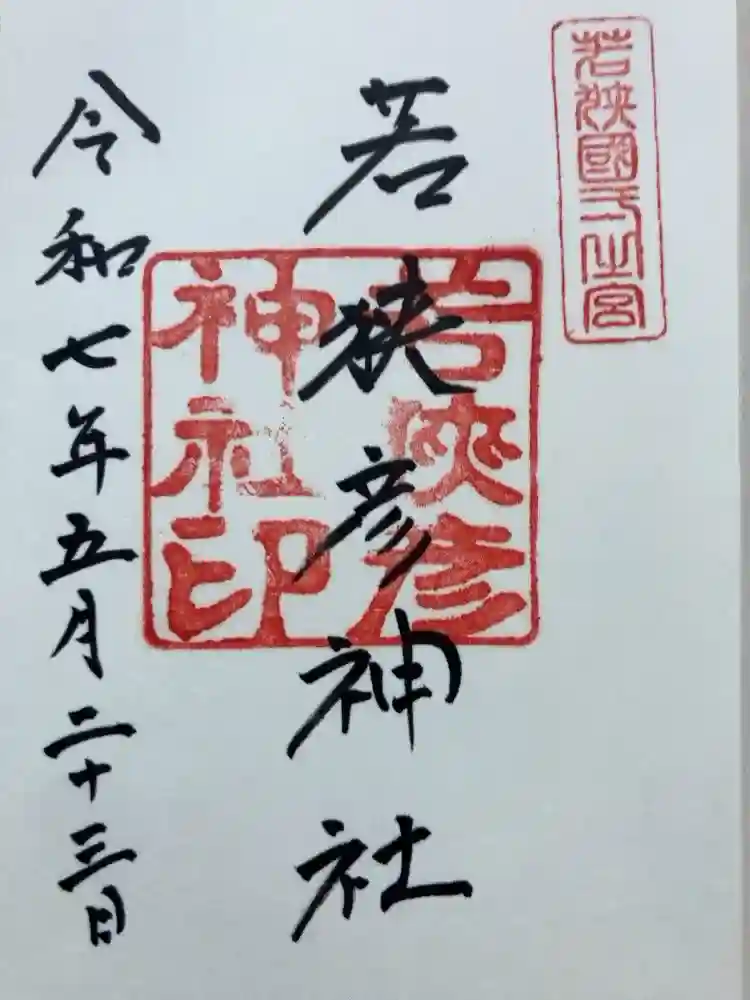 若狭國一之宮
若狭彦神社
若狭彦
神社印
令和七年五月二十三日